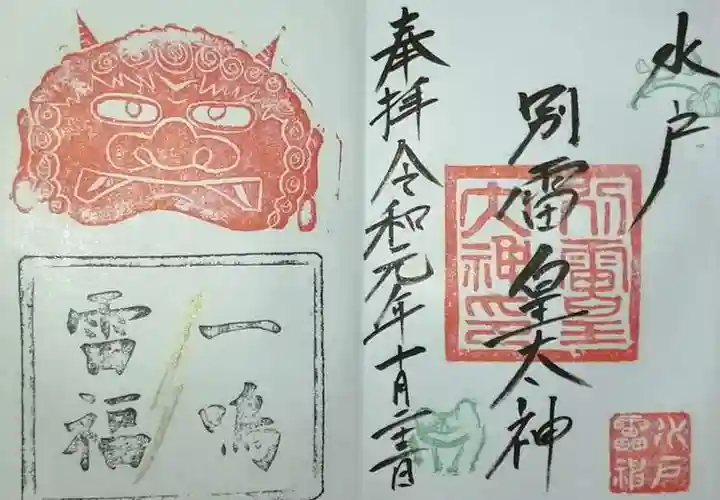 水戸
別雷皇太神
別雷皇
大神印
水戸
雷神
奉拝令和元年十月二十二日
一鳴
雷福